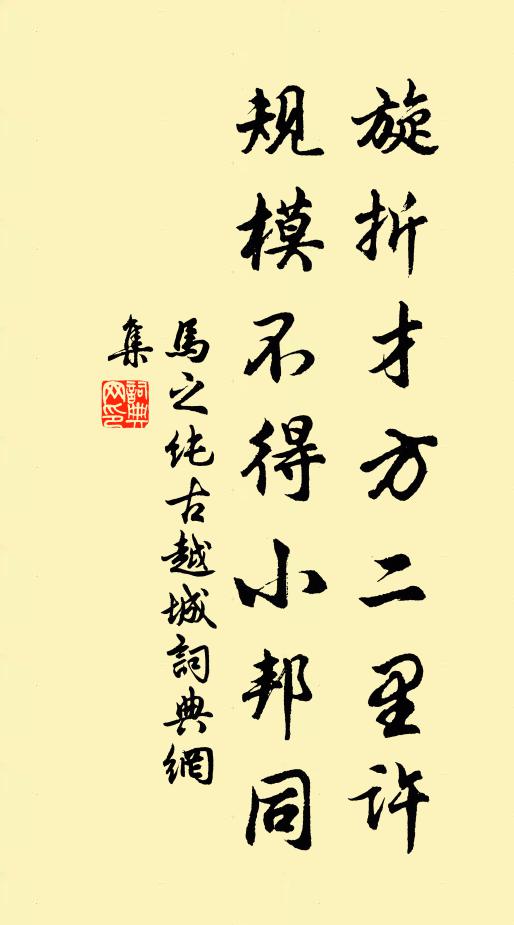 旋折才方二里許
規模不得小邦同
馬之純古越城詞典網
集
詞典網印